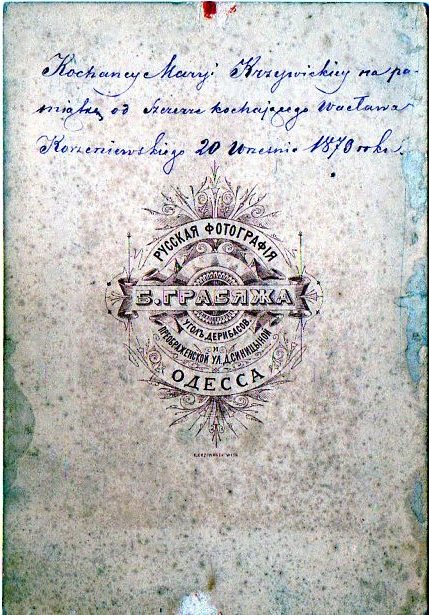 Kochancy Maryi Krzywickiey na pa-
miątkę od szczerze kochającego Wacława
Korzeniewskiego 20 Wrzesnia 1870 roku.
РУССКАЯ ФОТОГРАФІЯ
Б. ГРАБЯЖА
УГОЛЪ ДЕРИБАСОВ.
И
ПРЕОБРАЖЕНСКОЙ УЛ. Д. СИНИЦЫНОЙ
ОДЕССА